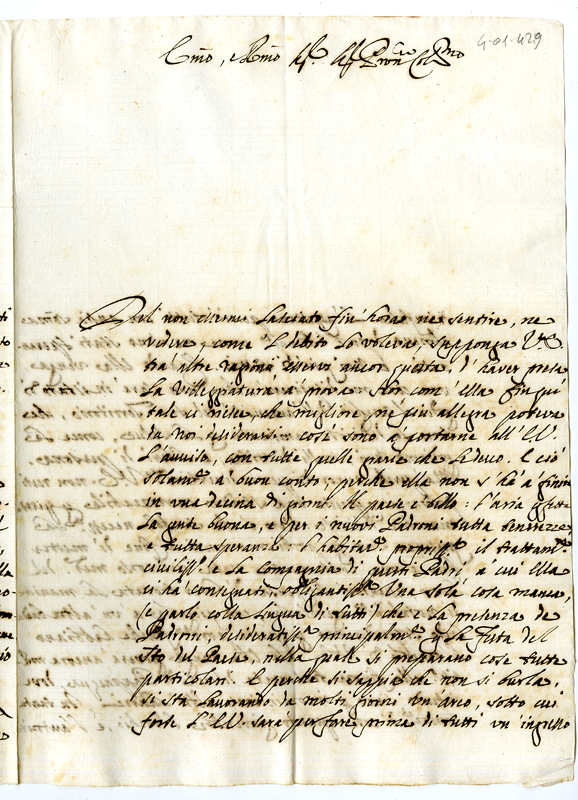 4-01-429
Emo, e Rmo Sig. Sig. Pron Col.mo
Dal non essermi lasciato fin' hora ne sentire, ne
vedere, come 'l debito lo voleva, supponga V.E.
tra' altre ragioni esservi ancor questa, d' haver presa
la Villeggiatura a' prova. Hor com' ella fin quì
tale ci riesce, che migliore, ne più allegra poteva
da noi desiderarsi: così sono a' portarne all' E.V.
l' avviso, con tutte quelle grazie che le devo. E ciò
solam.te a' buon conto; perche ella non s' ha a' finire
in una decina di giorni. Il paese è bello: l' aria
la gente buona, e per i nuovi Padroni tutta
e tutta speranza: l' habitaz.e il trattam.to
civiliss.o e la Compagnia di questi Padri, a' cui ella
ci ha consegnati, obligantiss.a Una sola cosa manca,
(e parlo colla lingua di tutti) che è la presenza de
Padroni, desideratiss.a principalm.te p la festa del
Sto del Paese, nella quale si preparano cose tutte
particolari. E perche si sappia che non si burla,
si stà lavorando da molti giorni un' arco, sotto cui
forse l' E.V. sarà per fare prima di tutti un' ingresso